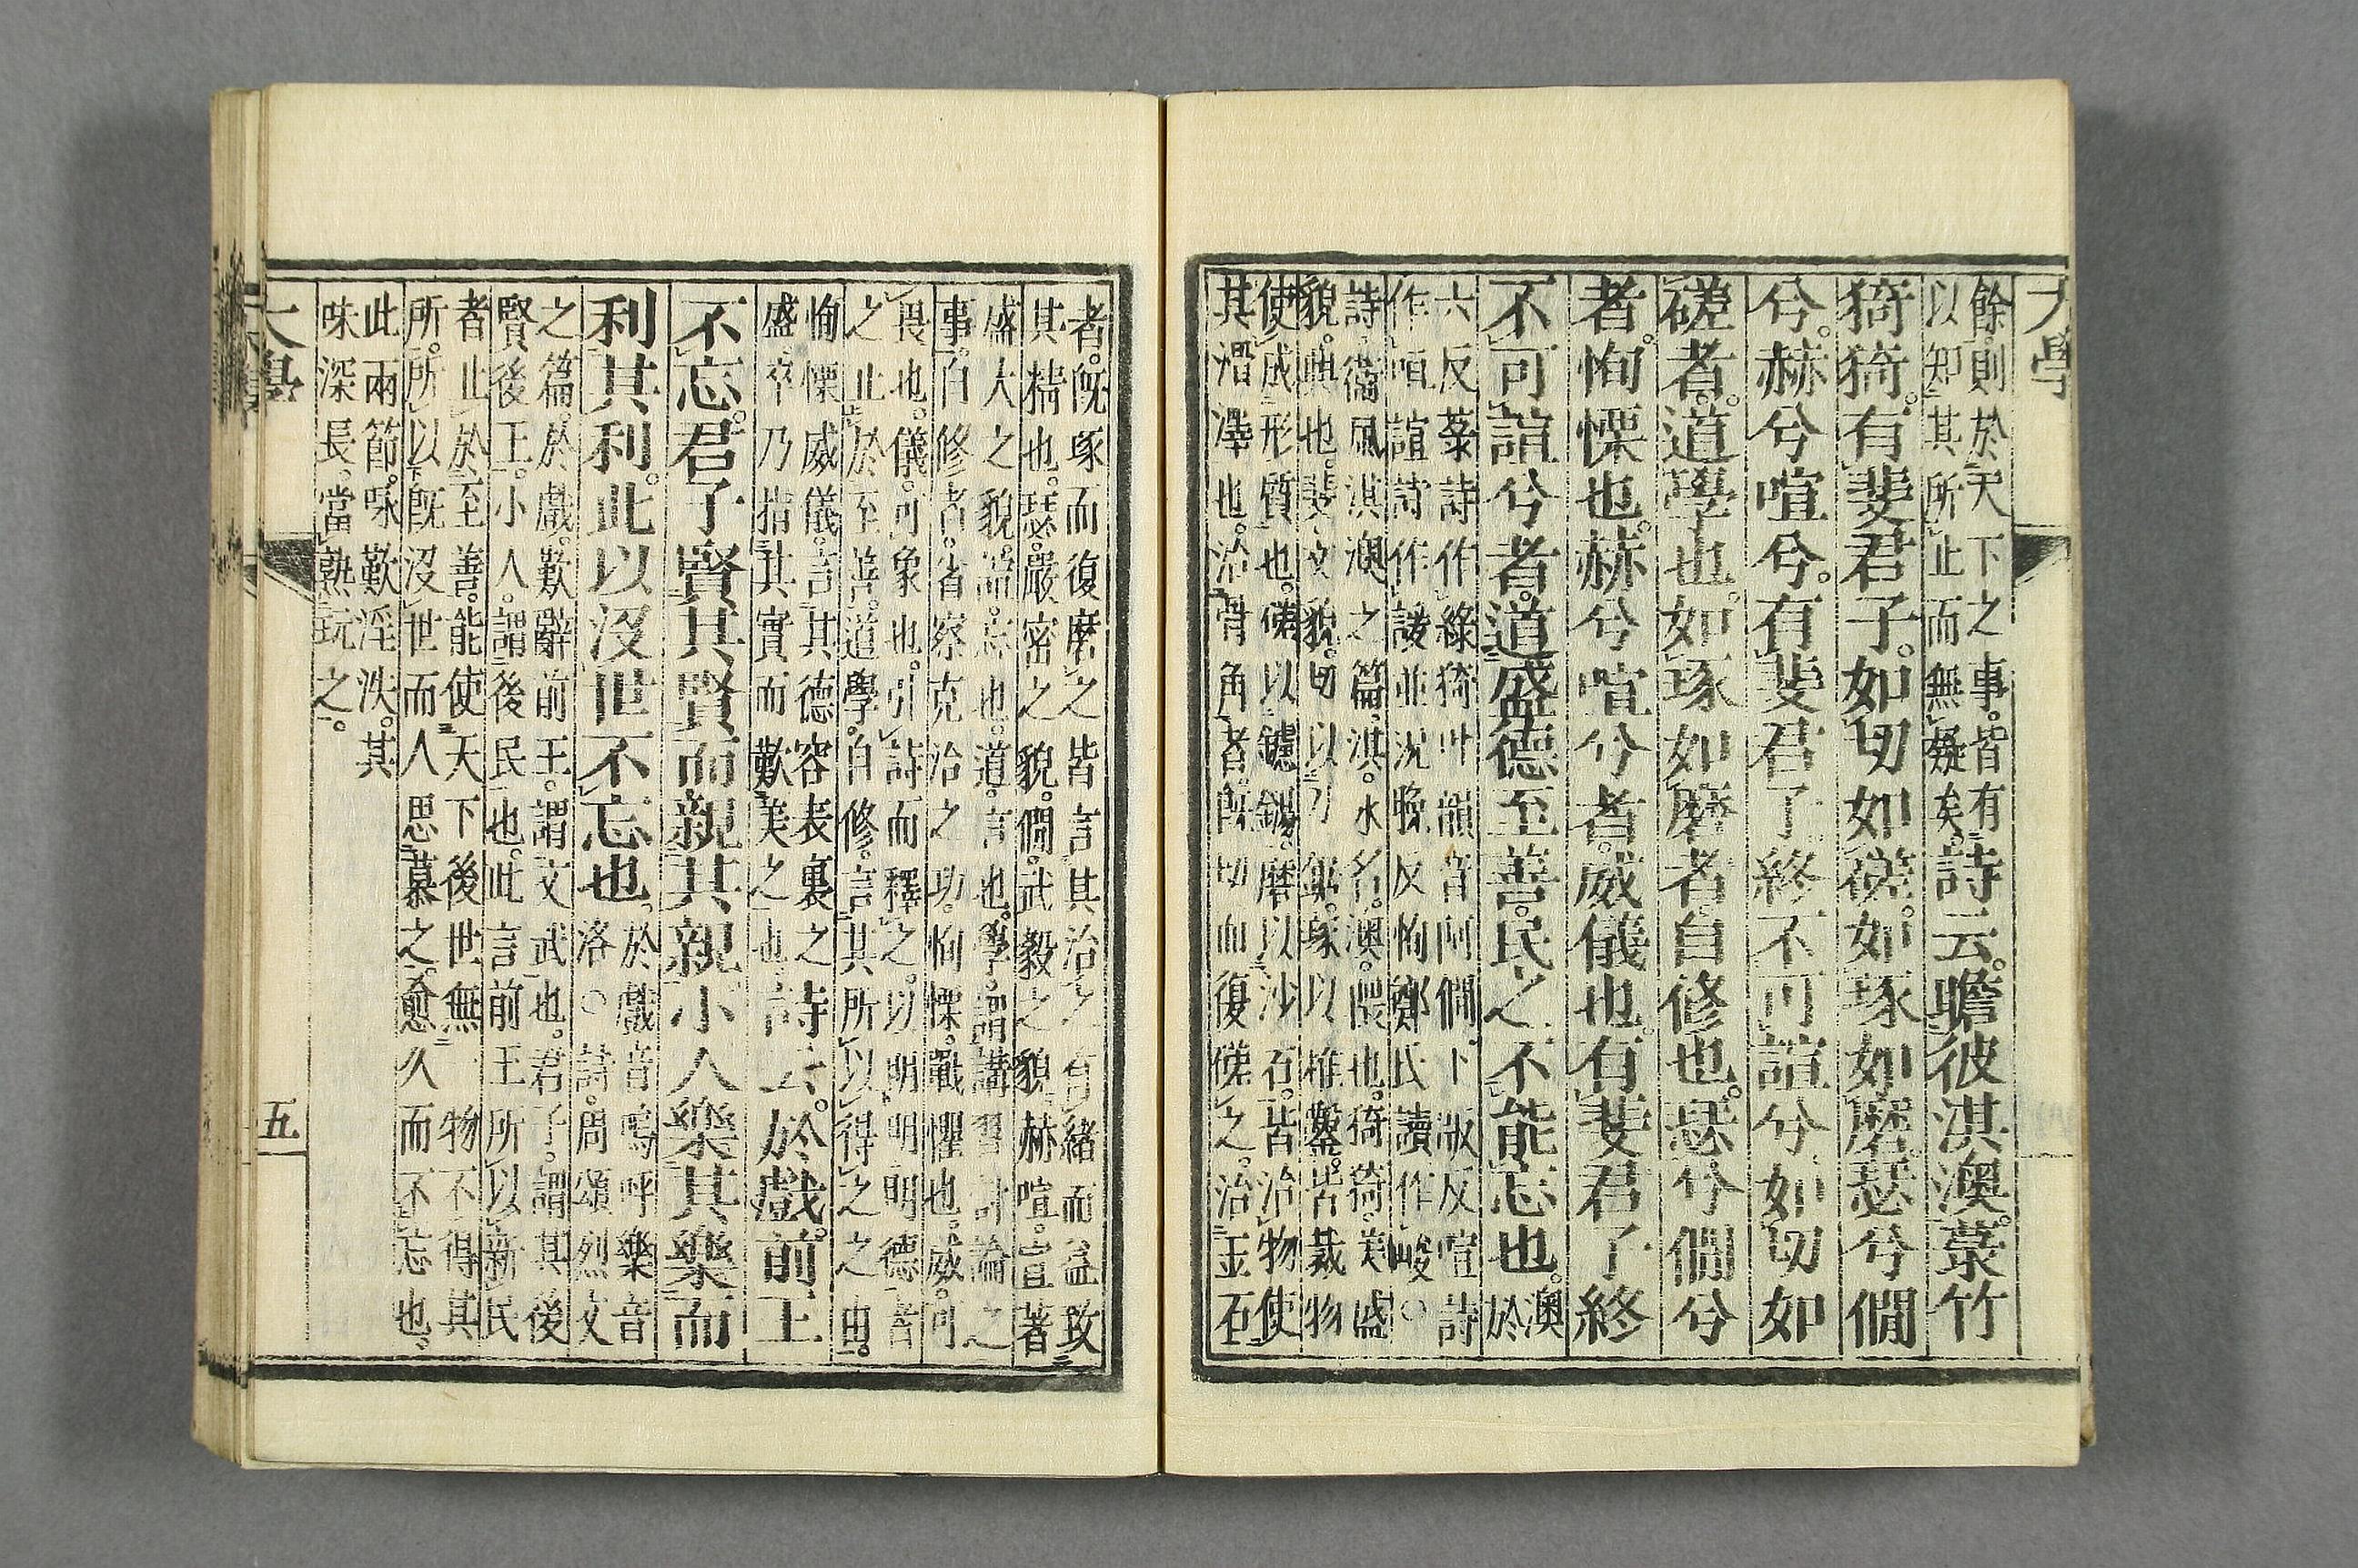 大學
餘。則於天下之事。皆有
以知其所止而無疑矣。
詩云。瞻彼淇澳。菉竹
猗猗。有斐君子。如切如磋。如琢如磨。瑟兮僩
兮。赫兮喧兮。有斐君子終不可諠兮。如切如
磋者。道學也。如琢如磨者。自修也。瑟兮僩兮
者。恂慄也。赫兮喧兮者。威儀也。有斐君子終
不可諠兮者。道盛德至善。民之不能忘也。
澳
於
六反菉詩作綠猗叶韻音阿僩下版反喧詩
作咺諠詩作諼並況晚反恂鄭氏讀作峻○
詩。衞風淇澳之篇。淇。水名。澳。隈也。猗猗。美盛
貌。興也。斐。文貌。切以刀鋸。琢以椎鑿。皆裁物
使成形質也。磋以鑢鐋。磨以沙石。皆治物使
其滑澤也。治骨角者。旣切而復磋之。治玉石
者。旣琢而復磨之。皆言其治之有緒而益致
其精也。瑟。嚴密之貌。僩。武毅之貌。赫喧。宣著
盛大之貌。諠。忘也。道。言也。學。謂講習討論之
事。自修者。省察克治之功。恂慄。戰懼也。威。可
畏也。儀。可象也。引詩而釋之。以明明明德者
之止於至善。道學。自修。言其所以得之之由。
恂慄威儀。言其德容表裏之
盛。卒乃指其實而歎美之也。
詩云。於戲。前王
不忘。君子賢其賢而親其親。小人樂其樂而
利其利。此以沒世不忘也。
於戲音嗚呼樂音
洛○詩。周頌烈文
之篇。於戲。歎辭前王。謂文武也。君子。謂其後
賢後王。小人。謂後民也。此言前王所以新民
者止於至善。能使天下後世無一物不得其
所。所以旣沒世而人思慕之。愈久而不忘也。
此兩節。咏歎淫泆。其
味深長。當熟玩之。
大學
五